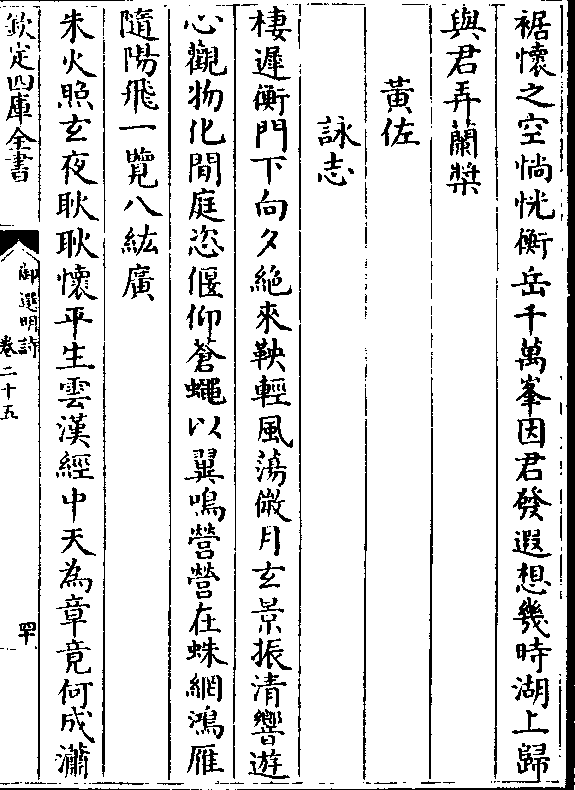 裾懷之空惝恍衡岳千萬峯因君發遐想幾時湖上歸
與君弄蘭槳
黃佐
詠志
棲遲衡門下向夕絶來鞅輕風蕩微月玄景振清響遊
心觀物化閒庭恣偃仰蒼蠅以翼鳴營營在蛛網鴻雁
隨陽飛一覽八紘廣
朱火照玄夜耿耿懷平生雲漢經中天為章竟何成瀟
欽定四庫全書
御選明詩
卷二十五
罕